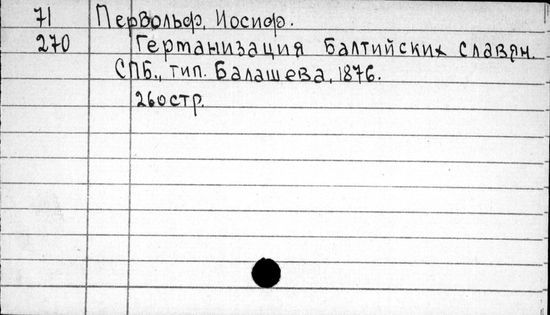 71 Первольф, Иосиф.
270 Гертанизация балтийских славян.
СПБ., тип. Балашева, 1876.
260стр.